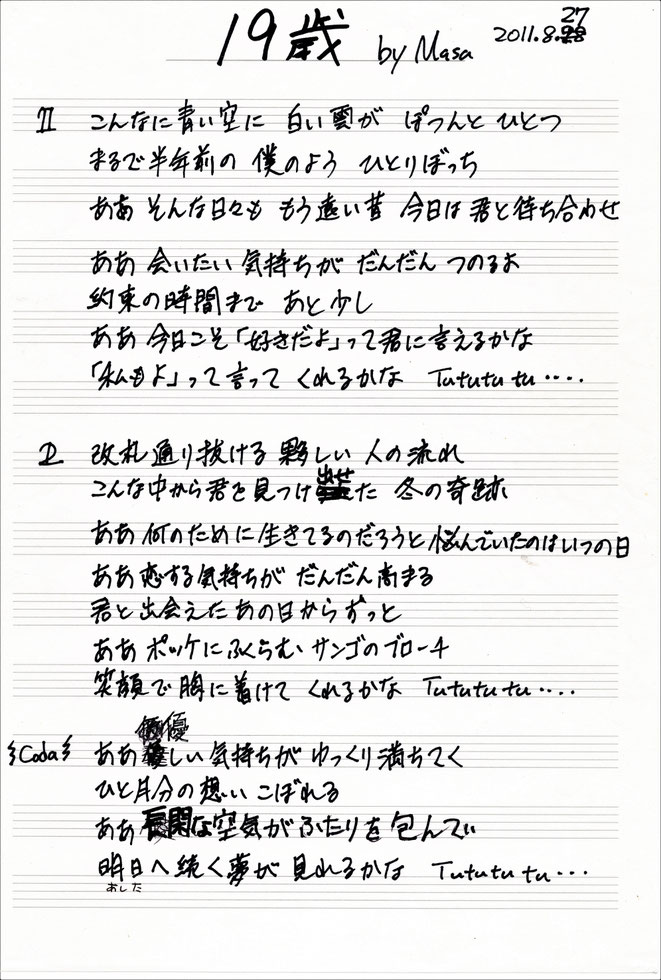 19歳 by Masa 2011.8.27
I こんなに青い空に 白い雲が ぽつんと ひとつ
まるで半年前の 僕のよう ひとりぼっち
ああ そんな日々も もう遠い昔 今日は 君と待ち合わせ
ああ 会いたい 気持ちが だんだん つのるよ
約束の時間まで あと少し
ああ 今日こそ「好きだよ」って君に言えるかな
「私もよ」って言って くれるかな Tutututu‥‥
II 改札通り抜ける 夥しい 人の流れ
こんな中から君を見つけ出せた 冬の奇跡
ああ 何のために生きてるのだろうと悩んでいたのはいつの日
ああ 恋する気持ちが だんだん高まる
君と出会えたあの日からずっと
ああ ポッケにふくらむ サンゴのブローチ
笑顔で胸に着けて くれるかな Tutututu‥‥
Coda ああ 優しい気持ちが ゆっくり満ちてく
ひと月分の想い こぼれる
ああ 長閑な空気がふたりを包んでい
明日へ続く夢が 見れるかな Tutututu‥‥
あした